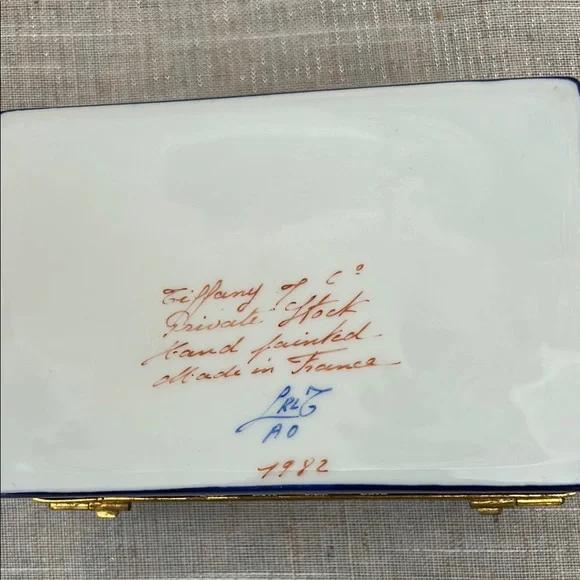 Tiffany & Co
Private Stock
Hand painted
Made in France
AO
1982